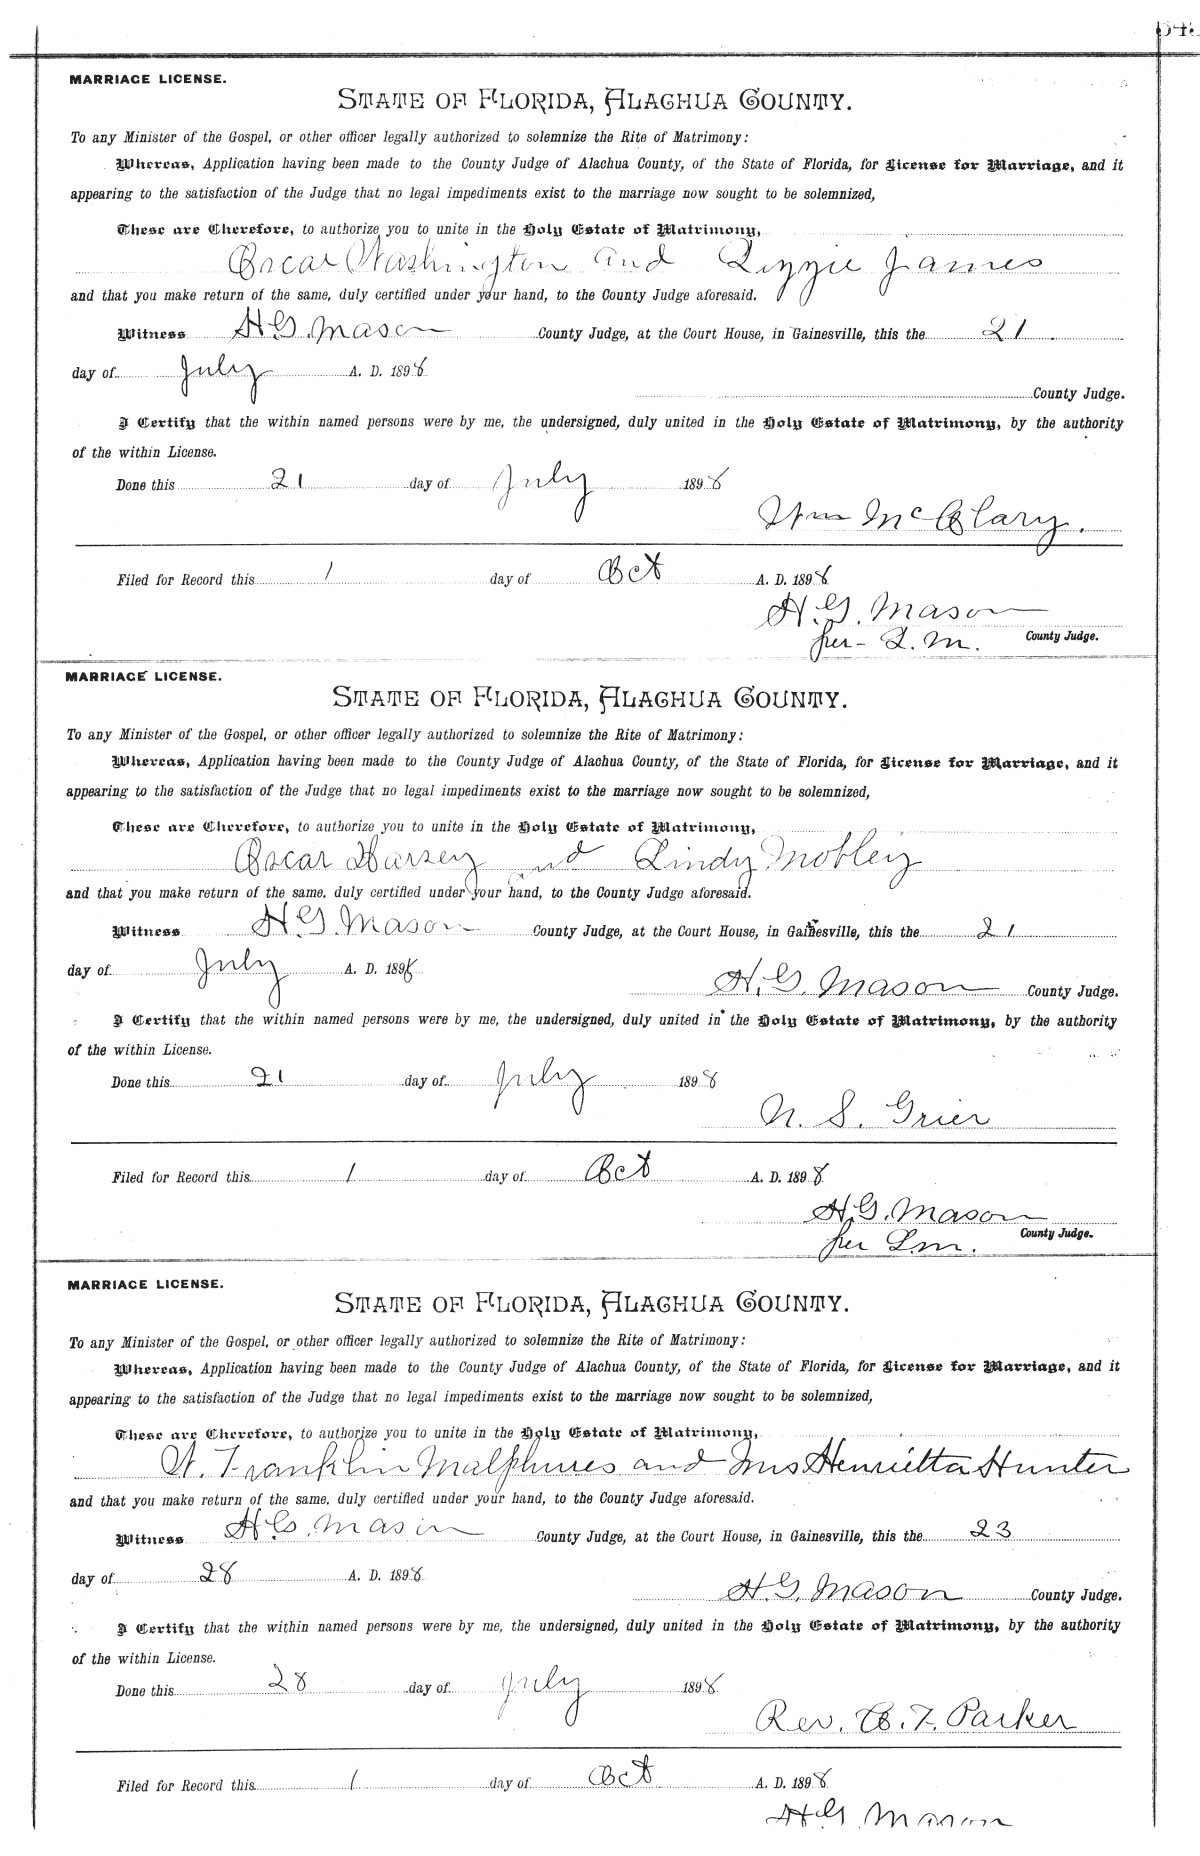 MARRIAGE LICENSE.
STATE OF FLORIDA, ALACHUA COUNTY.
To any Minister of the Gospel, or other officer legally authorized to solemnize the Rite of Matrimony:
Whereas, Application having been made to the County Judge of Alachua County, of the State of Florida, for License for Marriage, and it
appearing to the satisfaction of the Judge that no legal impediments exist to the marriage now sought to be solemnized,
These are Therefore, to authorize you to unite in the Holy Estate of Matrimony,
Oscar Washington and Lizzie James
and that you make return of the same, duly certified under your hand, to the County Judge aforesaid.
Witness H.G. Mason County Judge, at the Court House, in Gainesville, this the 21
day of July A. D. 1898
County Judge.
I Certify that the within named persons were by me, the undersigned, duly united in the Holy Estate of Matrimony, by the authority
of the within License.
Done this 21 day of July 1898
Wm McClary.
Filed for Record this 1 day of Oct A. D. 1898
H.G. Mason
per - L.M. County Judge.
MARRIAGE LICENSE.
STATE OF FLORIDA, ALACHUA COUNTY.
To any Minister of the Gospel, or other officer legally authorized to solemnize the Rite of Matrimony:
Whereas, Application having been made to the County Judge of Alachua County, of the State of Florida, for License for Marriage, and it
appearing to the satisfaction of the Judge that no legal impediments exist to the marriage now sought to be solemnized,
These are Therefore, to authorize you to unite in the Holy Estate of Matrimony,
Oscar Harsey and Lindy Mobley
and that you make return of the same, duly certified under your hand, to the County Judge aforesaid.
Witness H.G. Mason County Judge, at the Court House, in Gainesville, this the 21
day of July A. D. 1898
H.G. Mason County Judge.
I Certify that the within named persons were by me, the undersigned, duly united in the Holy Estate of Matrimony, by the authority
of the within License.
Done this 21 day of July 1898
N. S. Grier
Filed for Record this 1 day of Oct A. D. 1898
H.G. Mason
per L.M. County Judge.
MARRIAGE LICENSE.
STATE OF FLORIDA, ALACHUA COUNTY.
To any Minister of the Gospel, or other officer legally authorized to solemnize the Rite of Matrimony:
Whereas, Application having been made to the County Judge of Alachua County, of the State of Florida, for License for Marriage, and it
appearing to the satisfaction of the Judge that no legal impediments exist to the marriage now sought to be solemnized,
These are Therefore, to authorize you to unite in the Holy Estate of Matrimony,
Franklin Malphures and Mrs Henrietta Hunter
and that you make return of the same, duly certified under your hand, to the County Judge aforesaid.
Witness H.G. Mason County Judge, at the Court House, in Gainesville, this the 23
day of 28 A. D. 1898
H.G. Mason County Judge.
I Certify that the within named persons were by me, the undersigned, duly united in the Holy Estate of Matrimony, by the authority
of the within License.
Done this 28 day of July 1898
Rev. C. F. Parker
Filed for Record this 1 day of Oct A. D. 1898
H.G. Mason